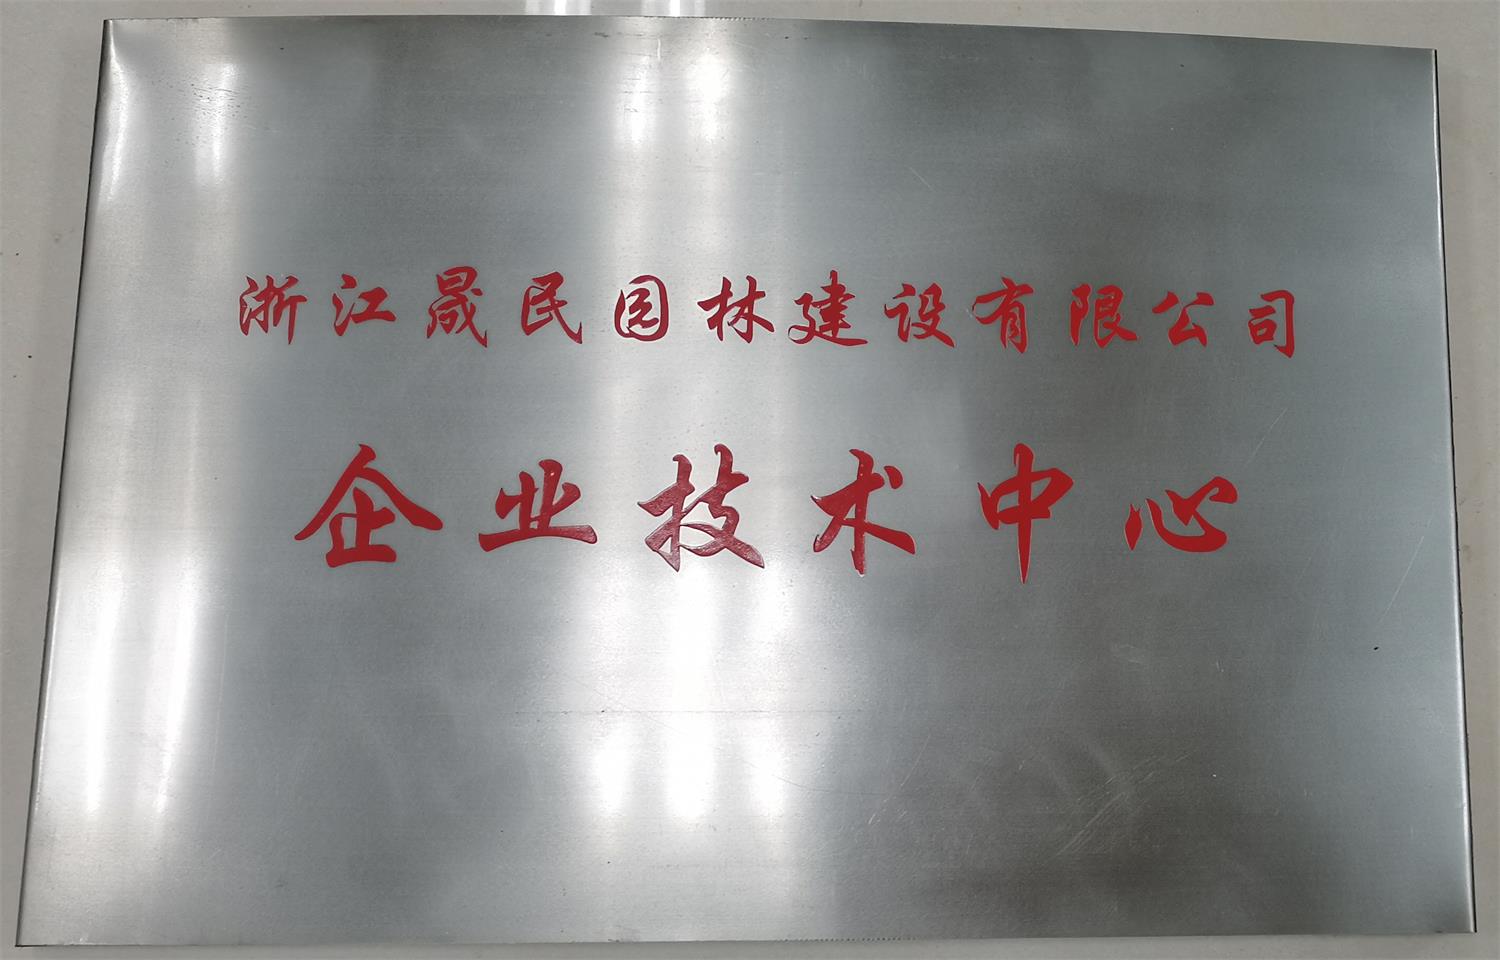 浙江晟民园林建设有限公司
企业技术中心